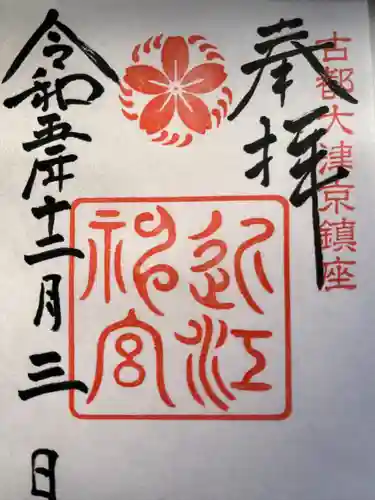 古都大津京鎮座
奉拝
近江
神宮
令和五年十二月三日